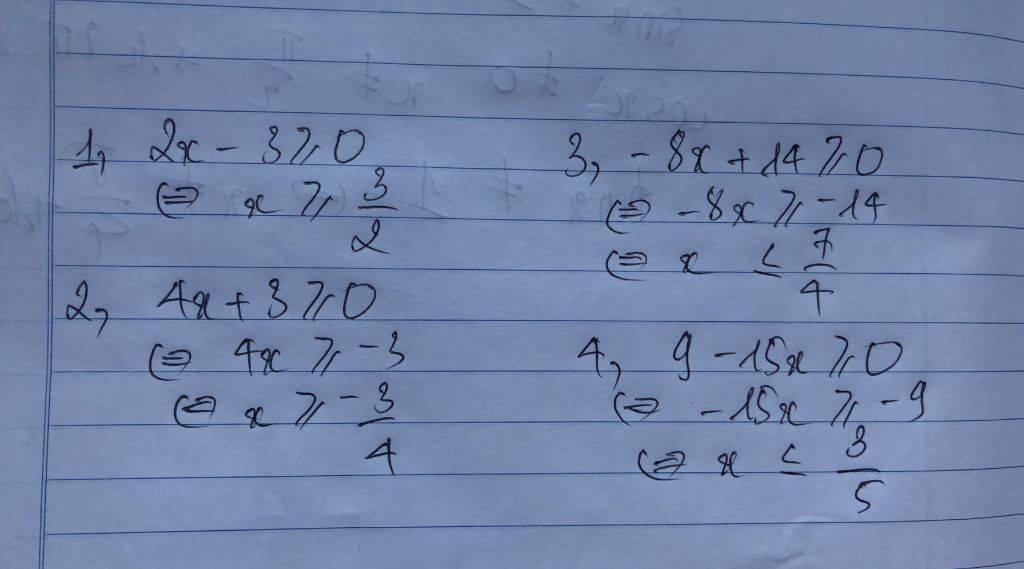 1, 2x - 3 ⩾ 0
⇔ x ⩾ 3/2
2, 4x + 3 ⩾ 0
⇔ 4x ⩾ -3
⇔ x ⩾ -3/4
3, -8x + 14 ⩾ 0
⇔ -8x ⩾ -14
⇔ x ≤ 7/4
4, 9 - 15x ⩾ 0
⇔ -15x ⩾ -9
⇔ x ≤ 3/5